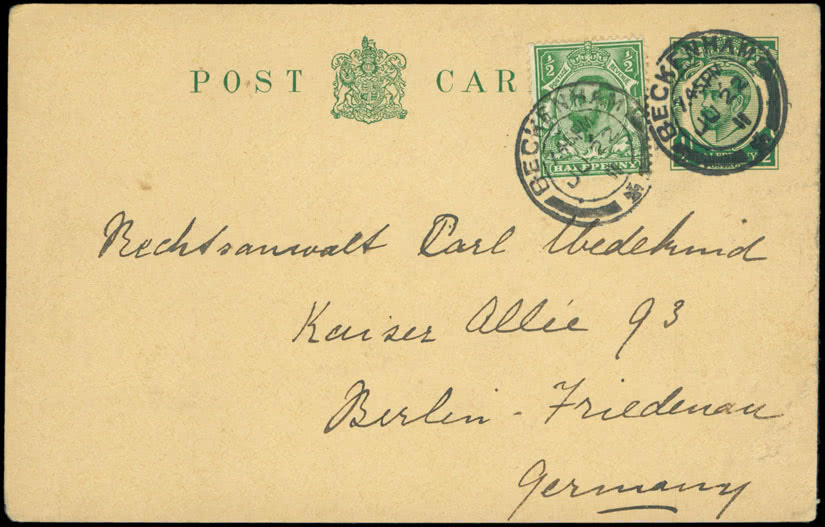 POST CAR
½ ½
POSTAGE
HALFPENNY
BECKENHAM
JU 22
11
BECKENHAM
JU 22
11
Rechtsanwalt Carl Wedekind
Kaiser Allée 93
Berlin - Friedenau
Germany